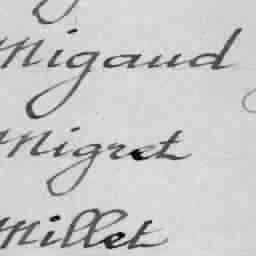 Migaud
Migret
Millet